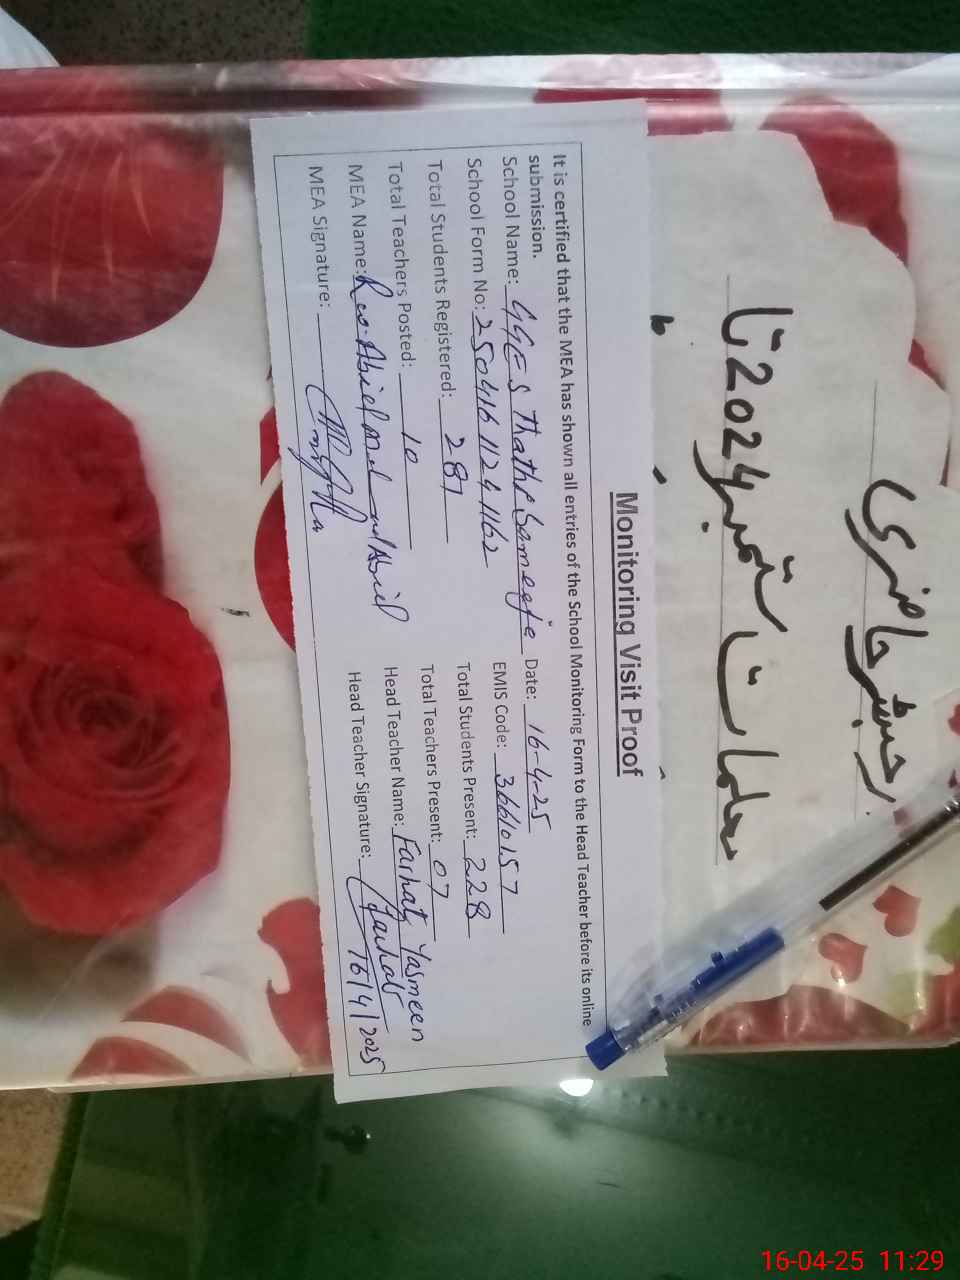 رجسٹر حاضری
معلمات ستمبر 2024 تا
Monitoring Visit Proof
It is certified that the MEA has shown all entries of the School Monitoring Form to the Head Teacher before its online
submission.
School Name: GGES Thatha Date: 16-4-25
School Form No: 25041611241162 EMIS Code: 36610157
Total Students Registered: 281 Total Students Present: 228
Total Teachers Posted: 10 Total Teachers Present: 07
MEA Name: Head Teacher Name: Farhat Yasmeen
MEA Signature: Head Teacher Signature: Farhat
16/4/2025
16-04-25 11:29